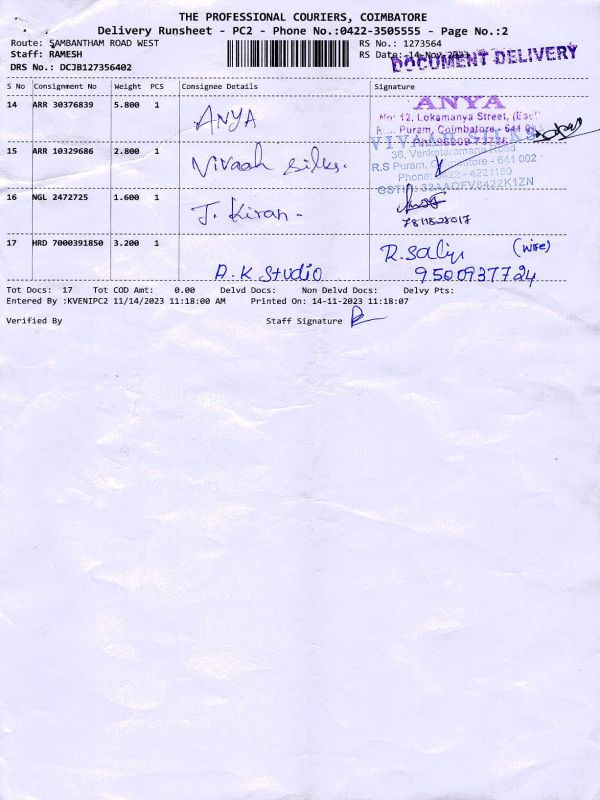 THE PROFESSIONAL COURIERS, COIMBATORE
Delivery Runsheet - PC2 - Phone No.:0422-3505555 - Page No.:2
Route: SAMBANTHAM ROAD WEST RS No.: 1273564
Staff: RAMESH RS Date: 14-Nov-2023
DOCUMENT DELIVERY
DRS No.: DCJB127356402
S No Consignment No Weight PCS Consignee Details Signature
14 ARR 30376839 5.800 1 ANYA
ANYA
No: 12, Lokamanya Street, (East)
Puram, Coimbatore - 641
15 ARR 10329686 2.800 1 Vivaah Silks.
VIVAAH SILKS
36, Venkataramana Road
R.S Puram, Coimbatore - 641 002
Phone: 0422 - 4221180
GSTIN: 33AAOFV8422K1ZN
16 NGL 2472725 1.600 1 J. Kiran -
7811828017
17 HRD 7000391850 3.200 1 D.K Studio
R. Saliya (wife)
9500937724
Tot Docs: 17 Tot COD Amt: 0.00 Delvd Docs: Non Delvd Docs: Delvy Pts:
Entered By :KVENIPC2 11/14/2023 11:18:00 AM Printed On: 14-11-2023 11:18:07
Verified By Staff Signature